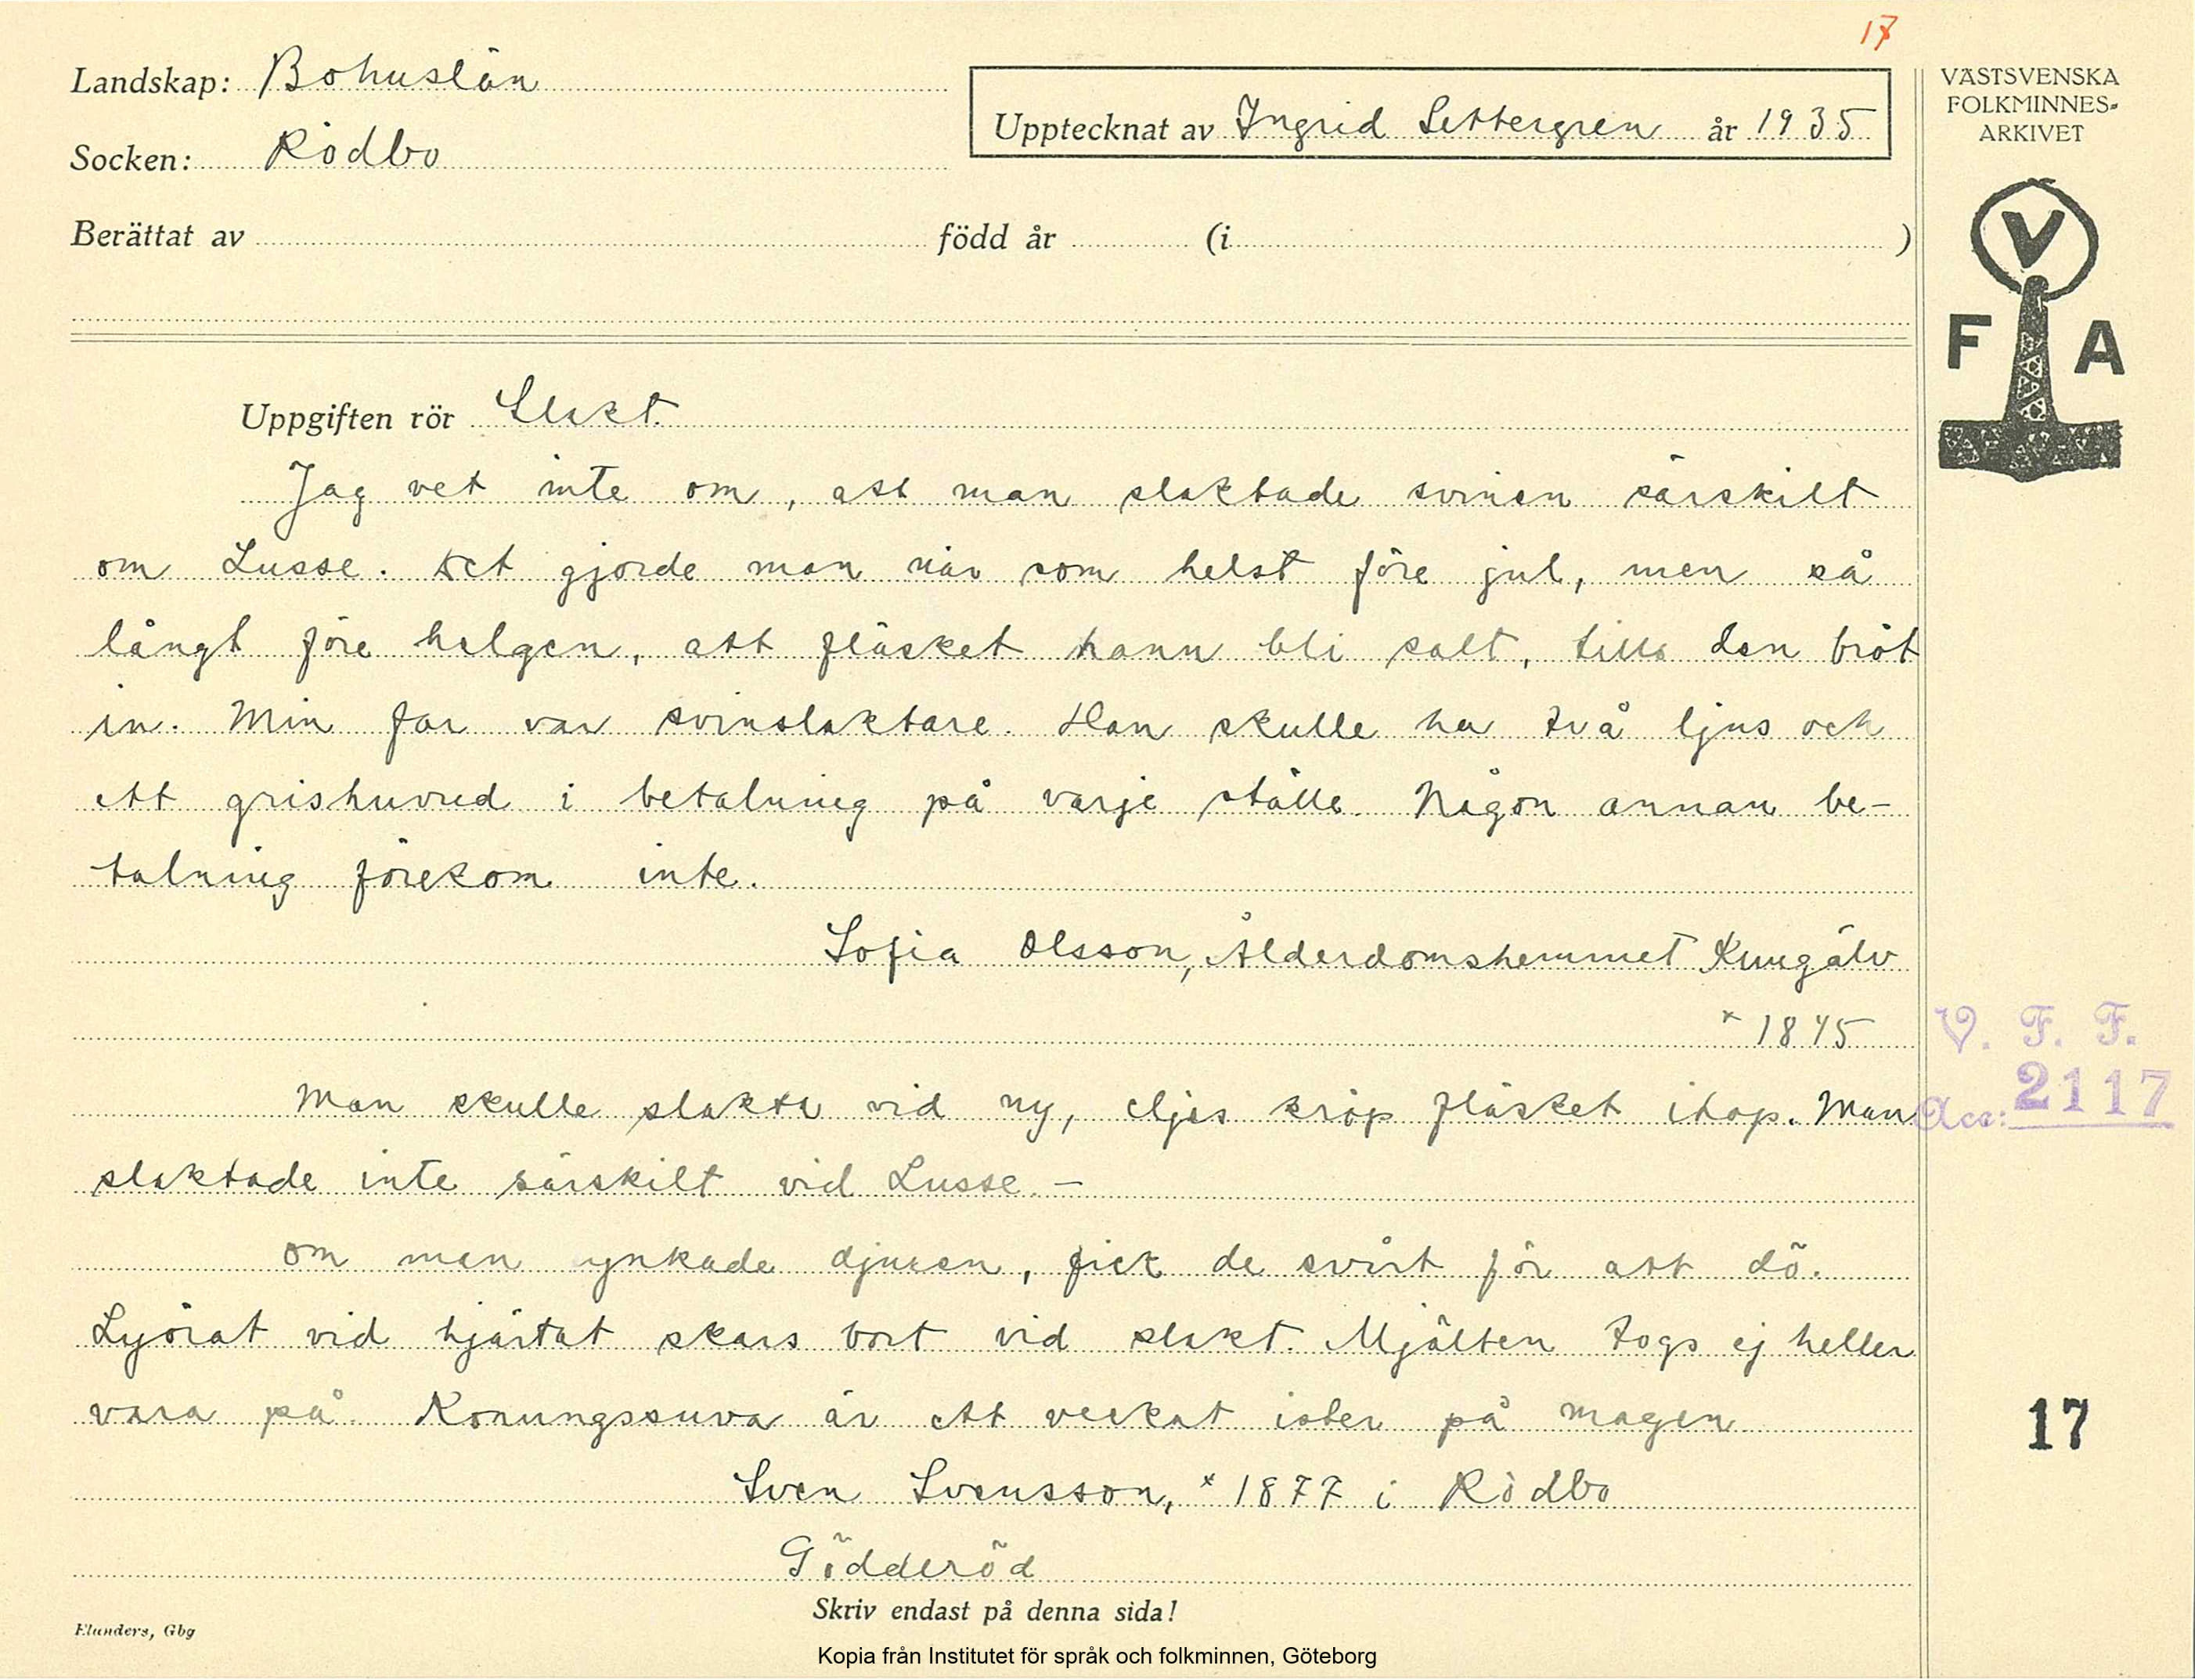 17
Landskap: Bohuslän
Socken: Rödbo
Upptecknat av Ingrid Settergren år 1935
Berättat av född år (i )
VÄSTSVENSKA
FOLKMINNES-
ARKIVET
V
F A
Uppgiften rör Slakt.
Jag vet inte om, att man slaktade svinen särskilt
om Lusse. Det gjorde man när som helst före jul, men så
långt före helgen, att fläsket hann bli salt, tills den bröt
in. Min far var svinslaktare. Han skulle ha två ljus och
ett grishuvud i betalning på varje ställe. Någon annan be-
talning förekom inte.
Sofia Olsson, Ålderdomshemmet Kungälv
* 1845
Man skulle slakta vid ny, eljes kröp fläsket ihop. Man
slaktade inte särskilt vid Lusse. —
Om man ynkade djuren, fick de svårt för att dö.
Lyörat vid hjärtat skars bort vid slakt. Mjälten togs ej heller
vara på. Konungssuva är ett veckat ister på magen.
Sven Svensson, * 1877 i Rödbo
Gödderöd
V. F. F.
Acc: 2117
17
Skriv endast på denna sida!
Elanders, Gbg
Kopia från Institutet för språk och folkminnen, Göteborg